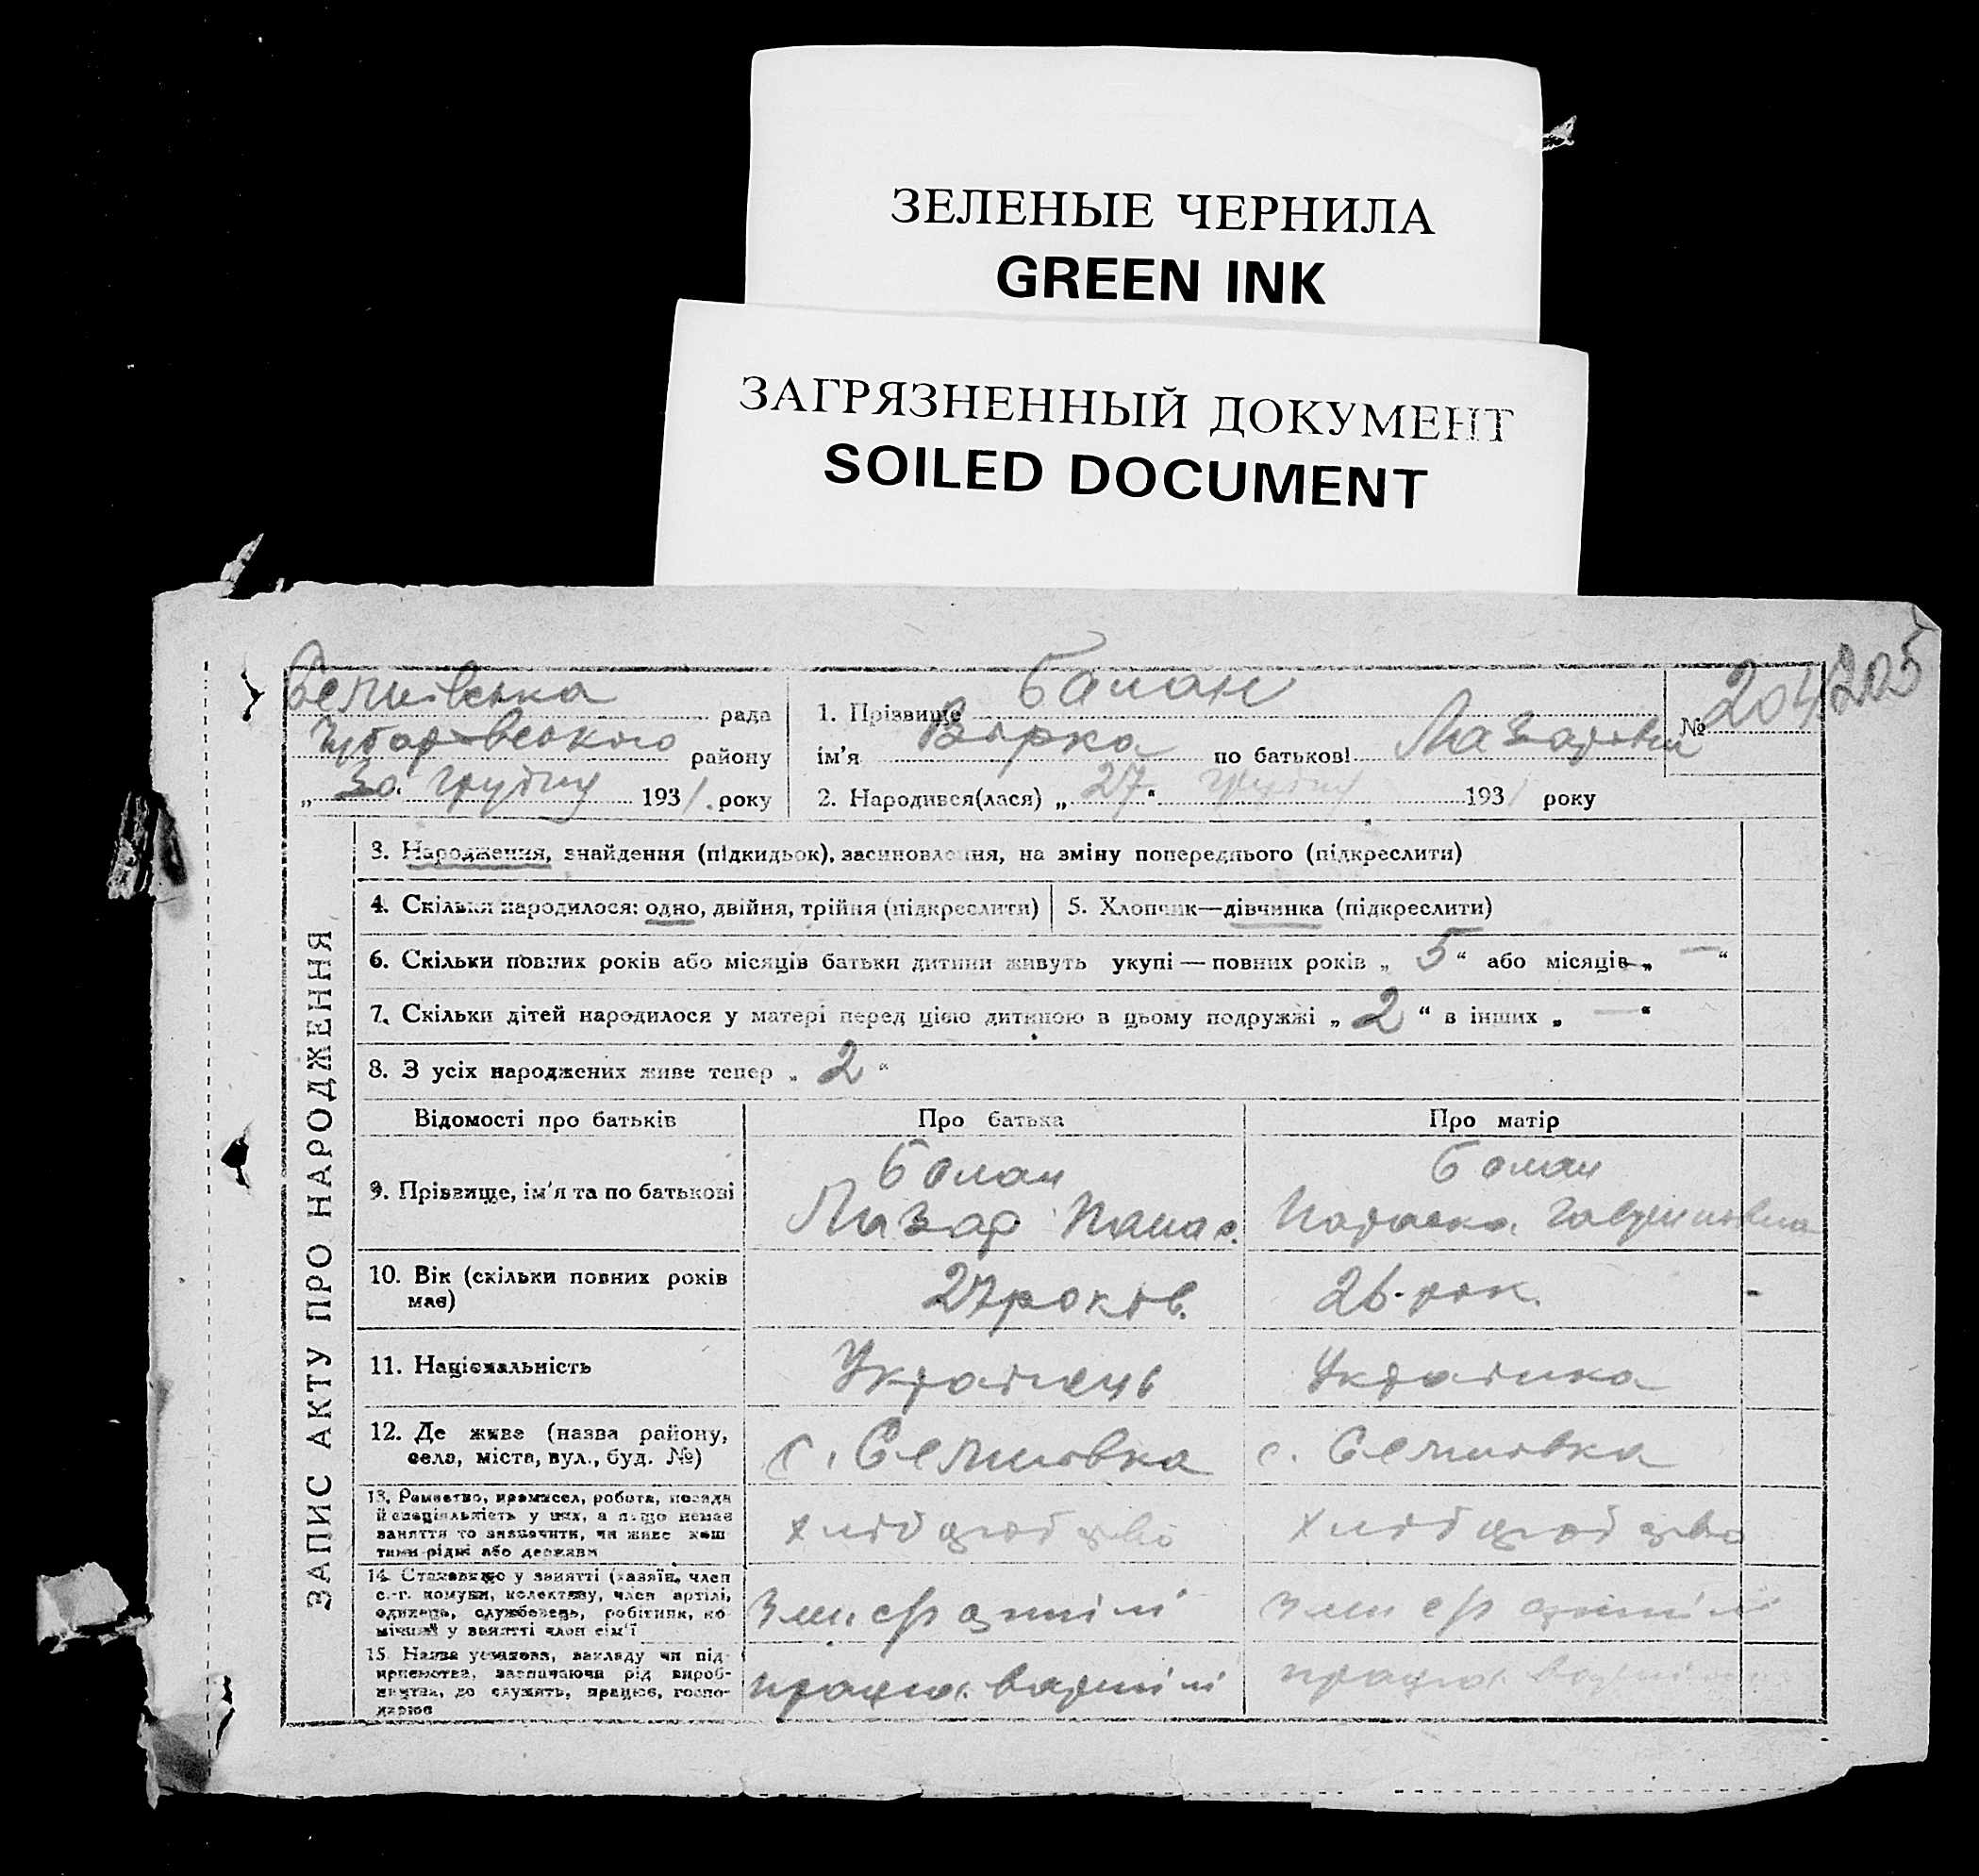 ЗЕЛЕНЫЕ ЧЕРНИЛА
GREEN INK
ЗАГРЯЗНЕННЫЙ ДОКУМЕНТ
SOILED DOCUMENT
ЗАПИС АКТУ ПРО НАРОДЖЕННЯ
рада
району
„ 30. грудня 1931. року
1. Прізвище Балан
ім'я Вірка по батькові Лазарівна
2. Народився(лася) „ 27 " грудня 1931 року
№ 204 205
3. Народження, знайдення (підкидьок), засиновлення, на зміну попереднього (підкреслити)
4. Скільки народилося: одно, двійня, трійня (підкреслити)
5. Хлопчик—дівчинка (підкреслити)
6. Скільки повних років або місяців батьки дитини живуть укупі — повних років „ 5 " або місяців „ — "
7. Скільки дітей народилося у матері перед цією дитиною в цьому подружжі „ 2 " в інших „ — "
8. З усіх народжених живе тепер „ 2 "
Відомості про батьків Про батька Про матір
9. Прізвище, ім'я та по батькові
Балан
Лазар Панас.
Балан
Параска
10. Вік (скільки повних років
має)
27 років.
26. рок.
11. Національність
Українець
Українка
12. Де живе (назва району,
села, міста, вул., буд. №)
с. Семинівка
с. Семинівка
13. Ремество, промисел, робота, посада
й спеціяльність у них, а якщо немає
заняття то зазначити, чи живе кош
тами рідні або держави
хлібороб
хлібороб
14. Становище у занятті (хазяїн, член
с.-г. комуни, колективу, член артілі,
одинець, службовець, робітник, по
мічний у занятті член сім'ї
член с/г артілі
член с/г артілі
15. Назва установи, закладу чи під-
приємства, зазначаючи рід вироб-
ництва, де служить, працює, госпо-
дарює
працює в артілі
працює в артілі